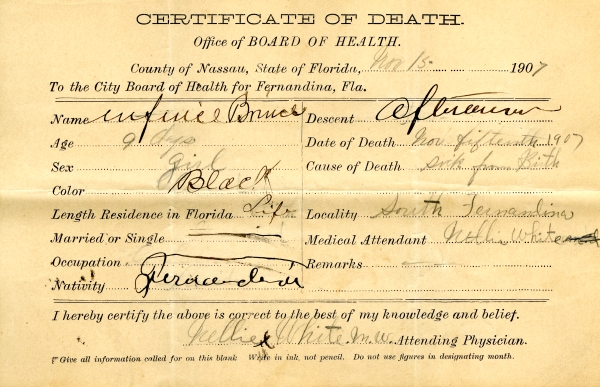 CERTIFICATE OF DEATH.
Office of BOARD OF HEALTH.
County of Nassau, State of Florida, Nov 15 1907
To the City Board of Health for Fernandina, Fla.
Name Bruce Descent
Age 9 dys Date of Death Nov fifteenth 1907
Sex girl Cause of Death sick from Birth
Color Black
Length Residence in Florida Life Locality South Fernandina
Married or Single Medical Attendant Nellie White
Occupation Remarks
Nativity Fernandina
I hereby certify the above is correct to the best of my knowledge and belief.
Nellie White m.w. Attending Physician.
Give all information called for on this blank Write in ink, not pencil. Do not use figures in designating month.